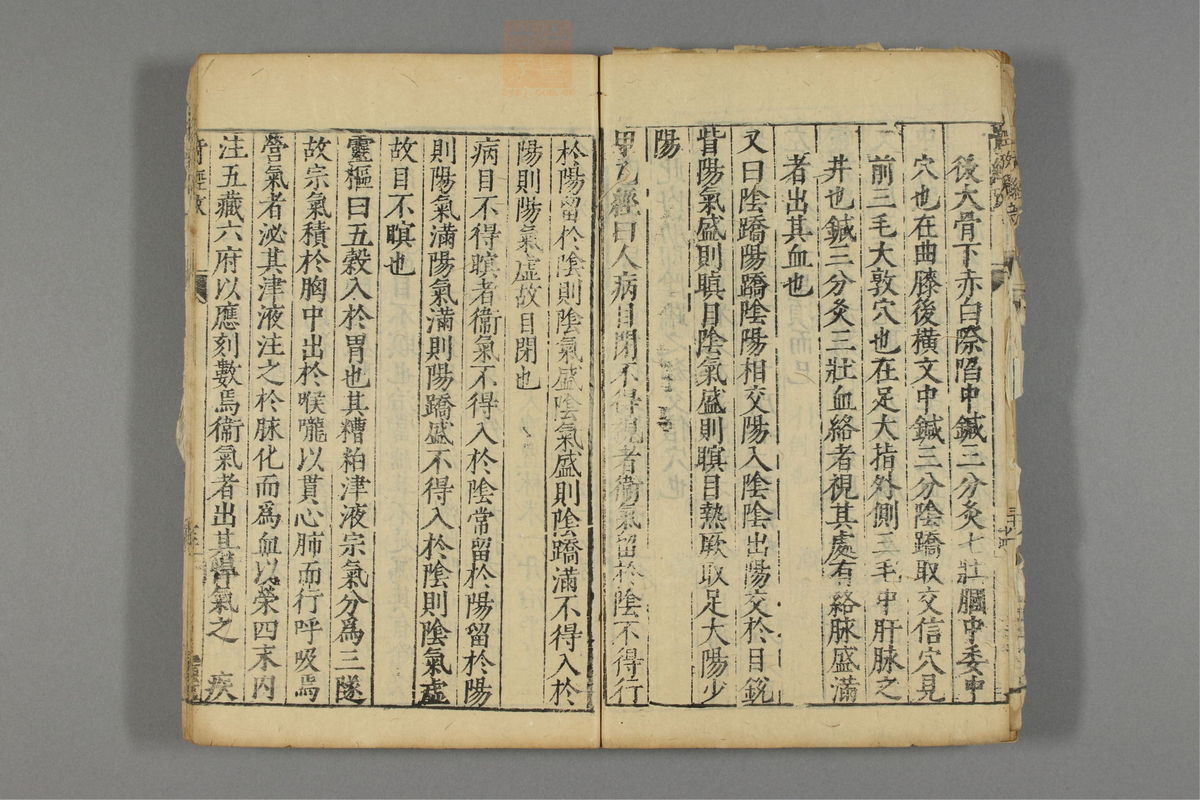 後大骨下赤白際陷中鍼三分灸七壯膕中委中
穴也在曲膝後橫文中鍼三分陰蹻取交信穴見
前三毛大敦穴也在足大指外側三毛中肝脉之
井也鍼三分灸三壯血絡者視其處有絡脉盛滿
者出其血也
又曰陰蹻陽蹻陰陽相交陽入陰陰出陽交於目銳
眥陽氣盛則瞋目陰氣盛則瞑目熱厥取足太陽少
陽
甲乙經曰人病目閉不得視者衞氣留於陰不得行
於陽留於陰則陰氣盛陰氣盛則陰蹻滿不得入於
陽則陽氣虛故目閉也
病目不得瞑者衞氣不得入於陰常留於陽留於陽
則陽氣滿陽氣滿則陽蹻盛不得入於陰則陰氣虛
故目不瞑也
靈樞曰五穀入於胃也其糟粕津液宗氣分爲三隧
故宗氣積於胸中出於喉嚨以貫心肺而行呼吸焉
營氣者泌其津液注之於脉化而爲血以榮四末內
注五藏六府以應刻數焉衞氣者出其悍氣之 疾